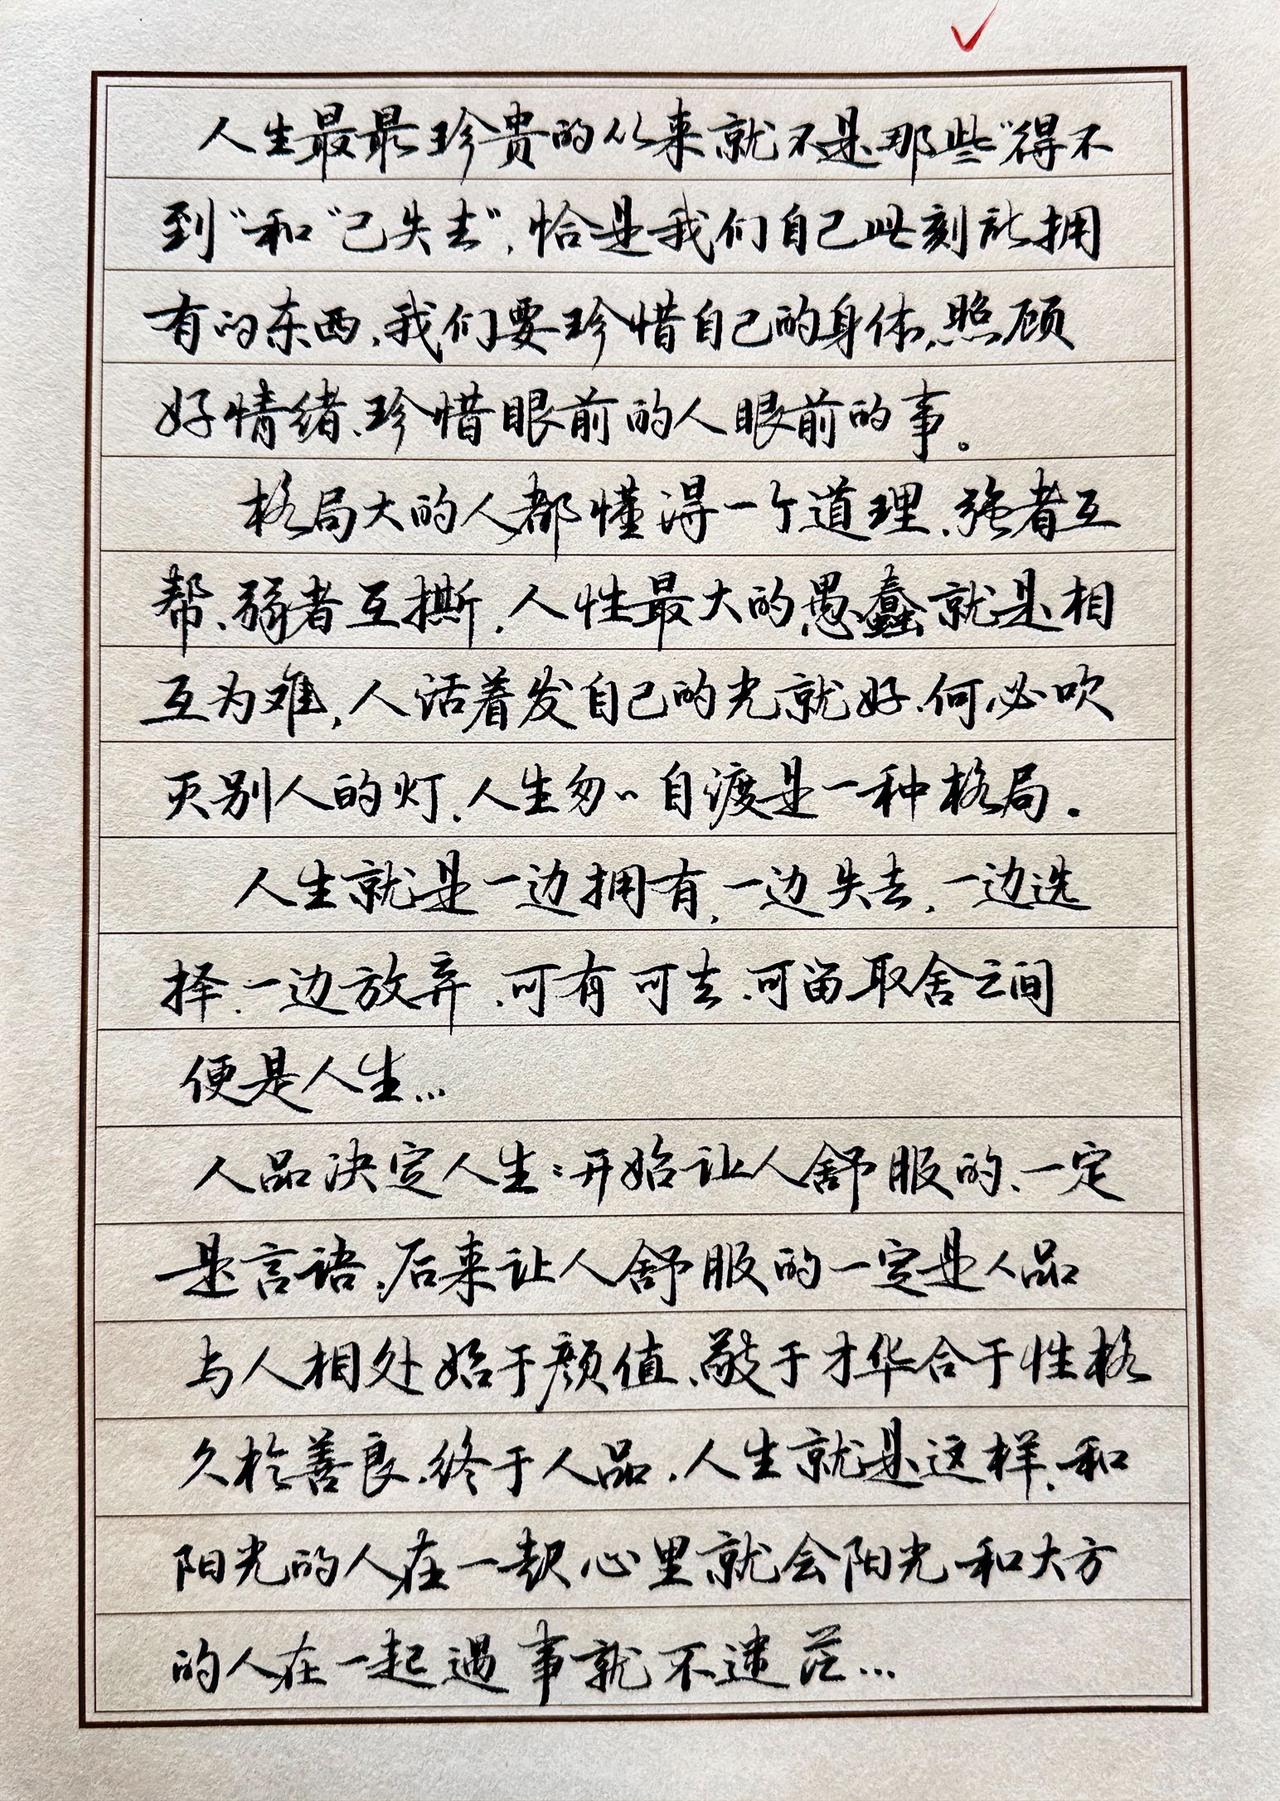 人生最最珍贵的从来就不是那些“得不
到”和“已失去”，恰是我们自己此刻能拥
有的东西，我们要珍惜自己的身体，照顾
好情绪、珍惜眼前的人眼前的事。
格局大的人都懂得一个道理，强者互
帮、弱者互撕，人性最大的愚蠢就是相
互为难，人活着发自己的光就好，何必吹
灭别人的灯，人生匆匆自渡是一种格局。
人生就是一边拥有，一边失去，一边选
择，一边放弃，可有可去，可留取舍之间
便是人生…
人品决定人生：开始让人舒服的、一定
是言语，后来让人舒服的一定是人品
与人相处始于颜值、敬于才华合于性格
久于善良，终于人品，人生就是这样，和
阳光的人在一起心里就会阳光和大方
的人在一起遇事就不迷茫…